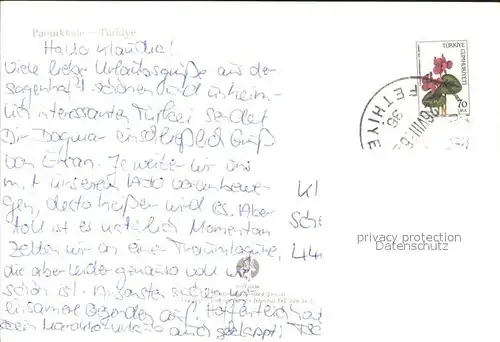 Pamukkale - Türkiye
Hallo Klaudia!
Viele liebe Urlaubsgrüße aus der
sagenhaft schönen und unheim-
lich interessanten Türkei sendet
Dir Dagmar einschließlich Gruß
von Erhan. Je weiter wir uns
mit unserem vorwärtsbewe-
gen, desto heißer wird es. Aber
toll ist es natürlich Momentan
zelten wir an einer Traumlagune,
die aber leider genauso voll wie
schön ist. Ansonsten suchen wir
einsame Gegenden auf. Hoffentlich hat
Dein Urlaub auch geklappt!
TÜRKİYE
CUMHURİYETİ
70
LİRA
FETHİYE
Kl
Sch
44
privacy protection
Datenschutz